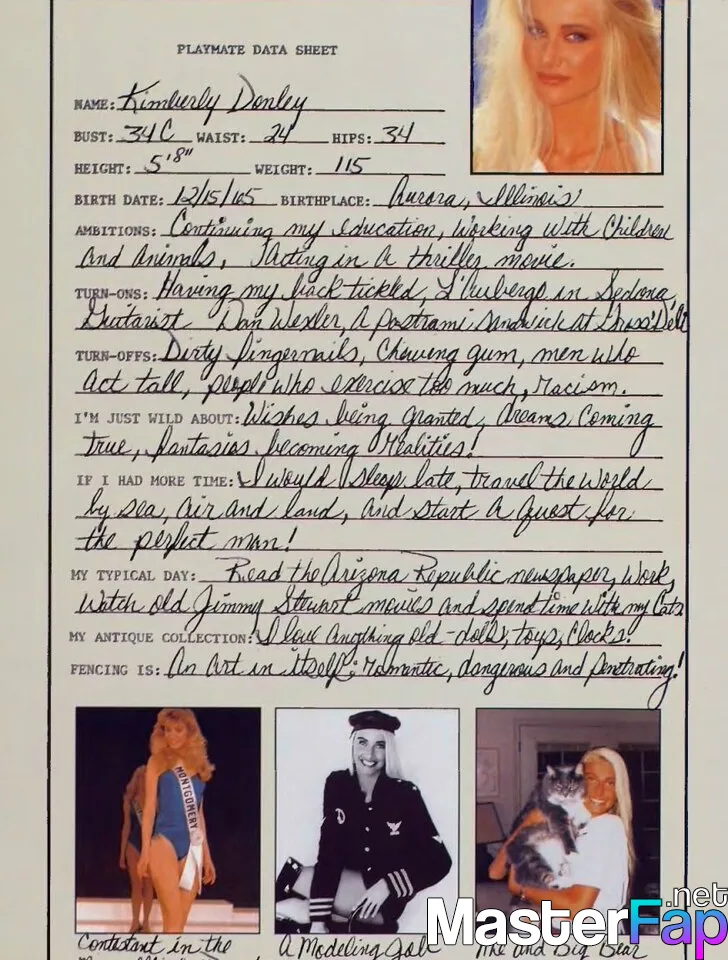 PLAYMATE DATA SHEET
NAME: Kimberly Donley
BUST: 34C WAIST: 24 HIPS: 34
HEIGHT: 5'8" WEIGHT: 115
BIRTH DATE: 12/15/65 BIRTHPLACE: Aurora, Illinois
AMBITIONS: Continuing my education, working with children
and animals, acting in a thriller movie.
TURN-ONS: Having my back tickled, L'Auberge in Sedona,
Guitarist Dan Wexler, a pastrami sandwich at Gross' Deli
TURN-OFFS: Dirty fingernails, chewing gum, men who
act tall, people who exercise too much, racism.
I'M JUST WILD ABOUT: Wishes being granted, dreams coming
true, fantasies becoming realities!
IF I HAD MORE TIME: I would sleep late, travel the world
by sea, air and land, and start a quest for
the perfect man!
MY TYPICAL DAY: Read the Arizona Republic newspaper, work,
watch old Jimmy Stewart movies and spend time with my cats
MY ANTIQUE COLLECTION: I love anything old-dolls, toys, clocks!
FENCING IS: An art in itself; romantic, dangerous and penetrating!
MONTGOMERY
Contestant in the
A Modeling Job
Me and Big Bear
MasterFap.net